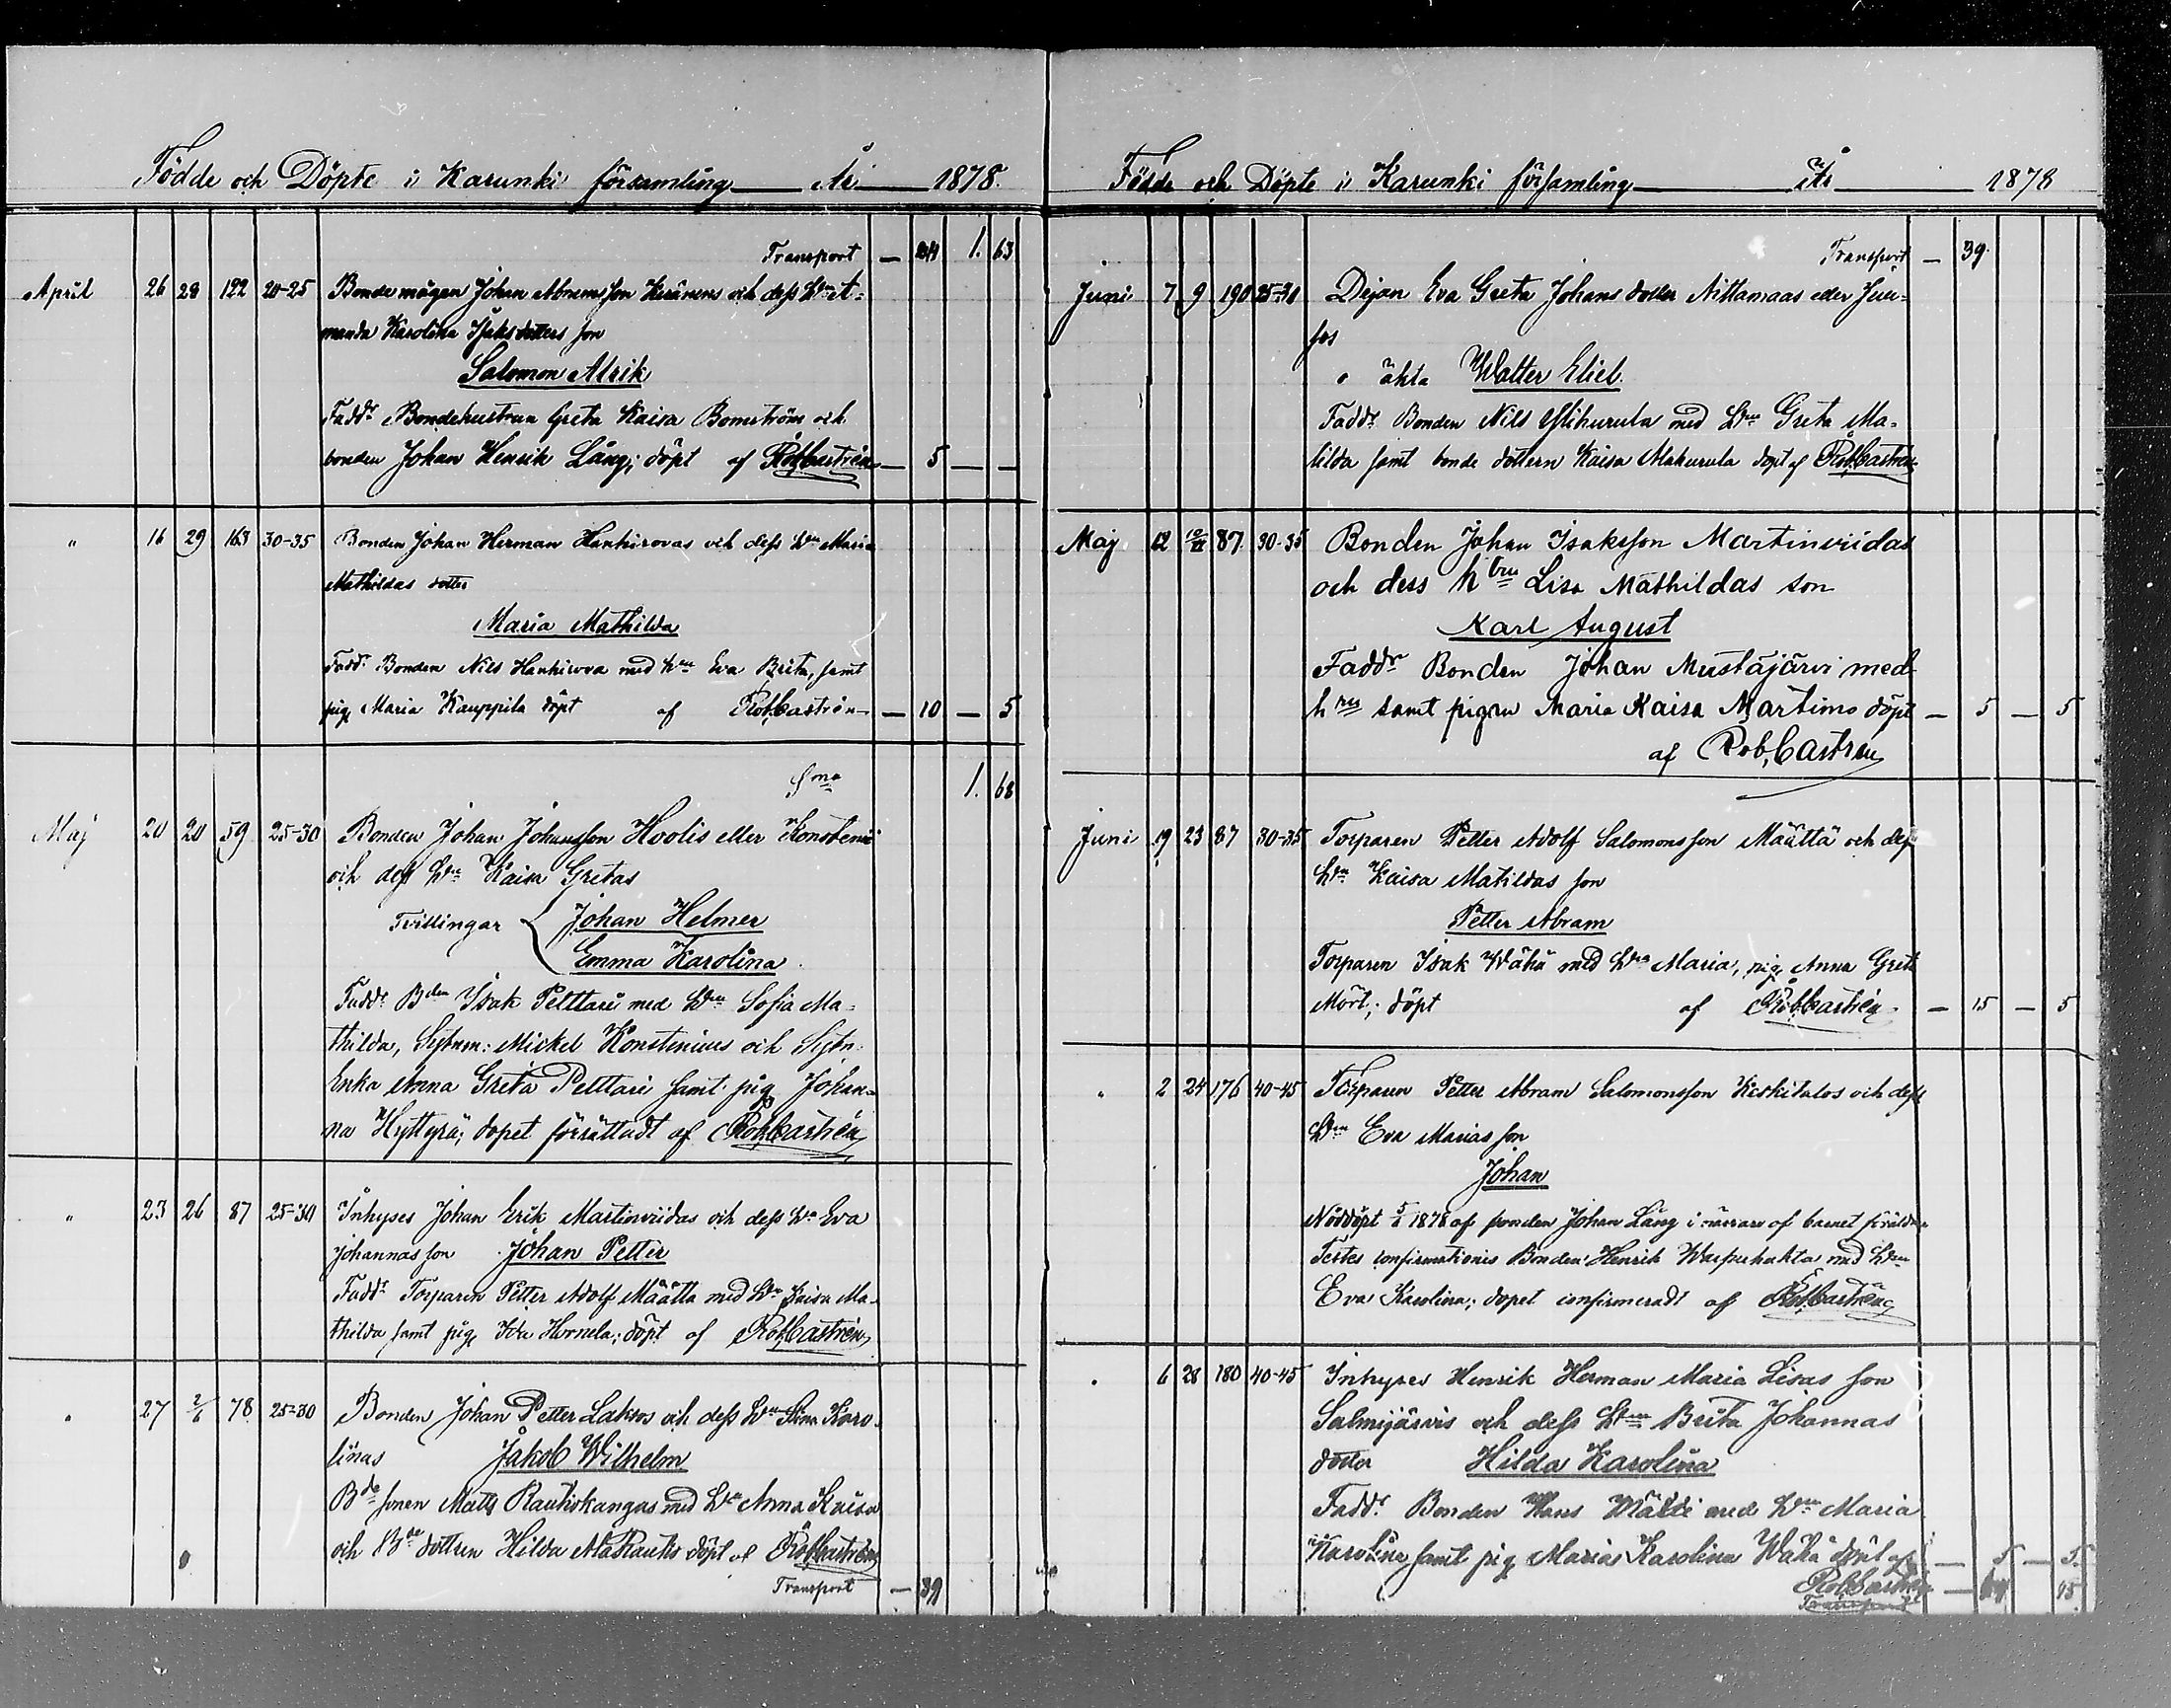 Födde och Döpte i Karunki församling År 1878.
Transport — 1. 63
April 26 28 122 20-25 Bonde mågen Johan Abramsson Keränens och dess h:u A-
manda Karolina Isaks dotters son
Salomon Alrik
Fadd:r Bondehustrun Greta Kaisa Bomström och
bonden Johan Henrik Lång; döpt af Rob. Castrén — 5 — —
" 16 29 163 30-35 Bonden Johan Herman Hankirovas och dess h:u Maria
Mathildas dotter
Maria Mathilda
Fadd:r Bonden Nils Hankirova med h:u Eva Brita, samt
pig. Maria Kauppila döpt af Rob. Castrén — 10 — 5
S:ma 1. 68
Maj 20 20 59 25-30 Bonden Johan Johansson Hoolis eller Konsteni
och dess h:u Kaisa Gretas
Tvillingar { Johan Helmer
Emma Karolina
Fadd:r B:den Isak Pelttari med h:u Sofia Ma-
thilda, Sytnm: Mickel Konstenius och Sytn.
Enka Anna Greta Pelttari samt pig Johan-
na Hyttyrä; dopet förrättadt af Rob. Castrén
" 23 26 87 25-30 Inhyses Johan Erik Martinviidas och dess h:u Eva
Johannas son Johan Petter
Fadd:r Torparen Petter Adolf Määttä med h:u Kaisa Ma-
thilda samt pig. Ida Hornela; döpt af Rob. Castrén
" 27 2/6 78 25-30 Bonden Johan Petter Laksos och dess h:u Stina Karo-
linas Jakob Wilhelm
B:de sonen Matts Rautiokangas med h:u Anna Kaisa
och B:de dottren Hilda AlaRautio döpt af Rob. Castrén
Transport — 39
Födde och Döpte i Karunki församling År 1878
Transport — 39.
Juni 7 9 190 25-30 Dejan Eva Greta Johans dotter Nittamaas eller
o äkta Walter Elieb.
Fadd:r Bonden Nils Ylihurula med h:u Greta Ma-
tilda samt bonde dottern Kaisa Alahurula döpt af Rob. Castrén
Maj 12 87 30-35 Bonden Johan Isaksson Martinviidas
och dess h:tru Lisa Mathildas son
Karl August
Fadd:r Bonden Johan Mustajärvi med
h:ru samt pigan Maria Kaisa Martimo döpt — 5 — 5
af Rob. Castrén
Juni 19 23 87 30-35 Torparen Petter Adolf Salomonsson Määttä och dess
h:u Kaisa Matildas son
Petter Abram
Torparen Isak Wähä med h:u Maria, pig. Anna Greta
Mört; döpt af Rob. Castrén — 15 — 5
" 2 24 176 40-45 Torparen Petter Abram Salomonsson Keskitalos och dess
h:u Eva Marias son
Johan
Nöddöpt 5/6 1878 af bonden Johan Lång i närvaro af barnet föräldrar
Testes confirmationis Bonden Henrik Waspuhakta med h:u
Eva Karolina; dopet confirmeradt af Rob. Castrén
" 6 28 180 40-45 Inhyses Henrik Herman Maria Lisas son
Salmijärvis och dess h:u Brita Johannas
dotter Hilda Karolina
Fadd:r Bonden Hans med h:u Maria
Karolina samt pig Maria Karolina Wähä döpt af — 5 — 5.
Rob. Castrén — 15
Transport